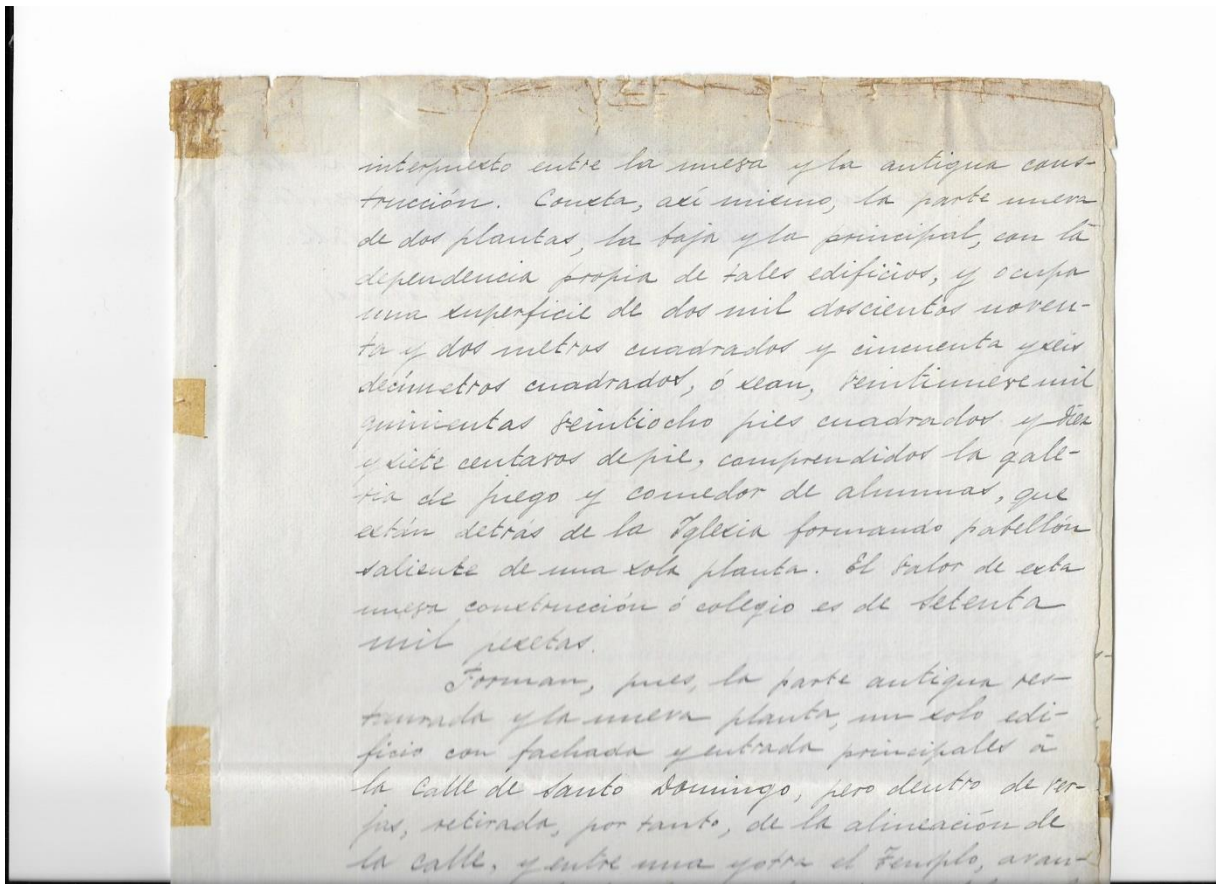 interpuesto entre la nueva y la antigua cons-
trucción. Consta, así mismo, la parte nueva
de dos plantas, la baja y la principal, con la
dependencia propia de tales edificios, y ocupa
una superficie de dos mil doscientos noven-
ta y dos metros cuadrados y cincuenta y seis
decímetros cuadrados, ó sean, veintinueve mil
quinientas veintiocho pies cuadrados y diez
y siete centavos de pie, comprendidos la gale-
ria de juego y comedor de alumnas, que
están detrás de la Iglesia formando pabellón
saliente de una sola planta. El valor de esta
nueva construcción ó colegio es de setenta
mil pesetas.
Forman, pues, la parte antigua res-
taurada y la nueva planta, un solo edi-
ficio con fachada y entrada principales á
la Calle de Santo Domingo, pero dentro de ver-
jas, retirada, por tanto, de la alineación de
la calle, y entre una y otra el Templo, avan-